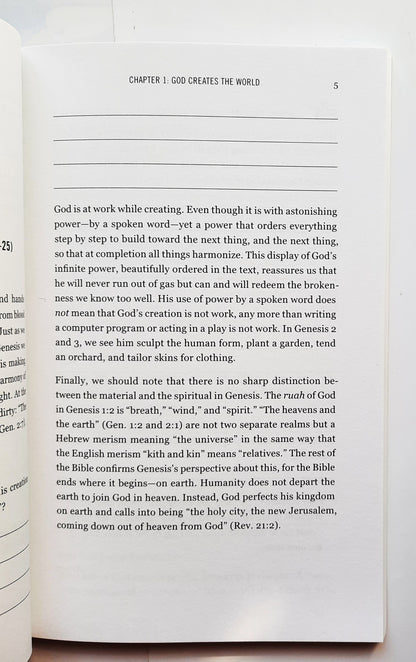 -25)
nd hands
rom blood
Just as we
Genesis we
is making
armony of
ght. At the
dirty: "The
Gen. 2:7).
is creation
"?
CHAPTER 1: GOD CREATES THE WORLD 5
God is at work while creating. Even though it is with astonishing
power—by a spoken word—yet a power that orders everything
step by step to build toward the next thing, and the next thing,
so that at completion all things harmonize. This display of God's
infinite power, beautifully ordered in the text, reassures us that
he will never run out of gas but can and will redeem the broken-
ness we know too well. His use of power by a spoken word does
not mean that God's creation is not work, any more than writing
a computer program or acting in a play is not work. In Genesis 2
and 3, we see him sculpt the human form, plant a garden, tend
an orchard, and tailor skins for clothing.
Finally, we should note that there is no sharp distinction be-
tween the material and the spiritual in Genesis. The ruah of God
in Genesis 1:2 is "breath," "wind," and "spirit." "The heavens and
the earth" (Gen. 1:2 and 2:1) are not two separate realms but a
Hebrew merism meaning "the universe" in the same way that
the English merism "kith and kin" means "relatives." The rest of
the Bible confirms Genesis's perspective about this, for the Bible
ends where it begins—on earth. Humanity does not depart the
earth to join God in heaven. Instead, God perfects his kingdom
on earth and calls into being "the holy city, the new Jerusalem,
coming down out of heaven from God" (Rev. 21:2).